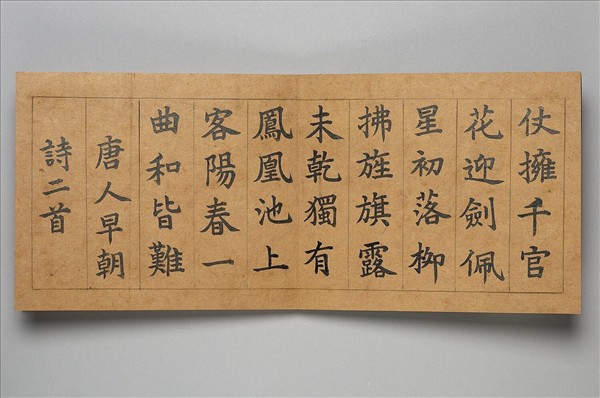 仗擁千官
花迎劍佩
星初落柳
拂旌旗露
未乾獨有
鳳凰池上
客陽春一
曲和皆難
唐人早朝
詩二首